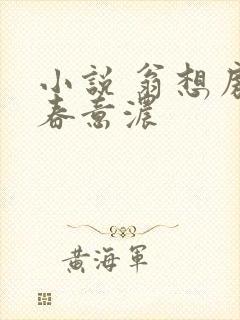 小說 翁想
春意濃
黃海軍